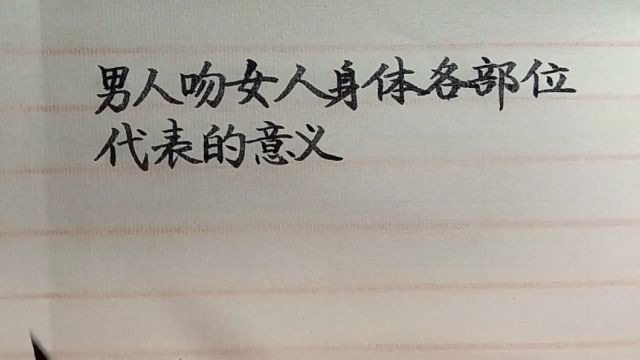 男人吻女人身体各部位
代表的意义